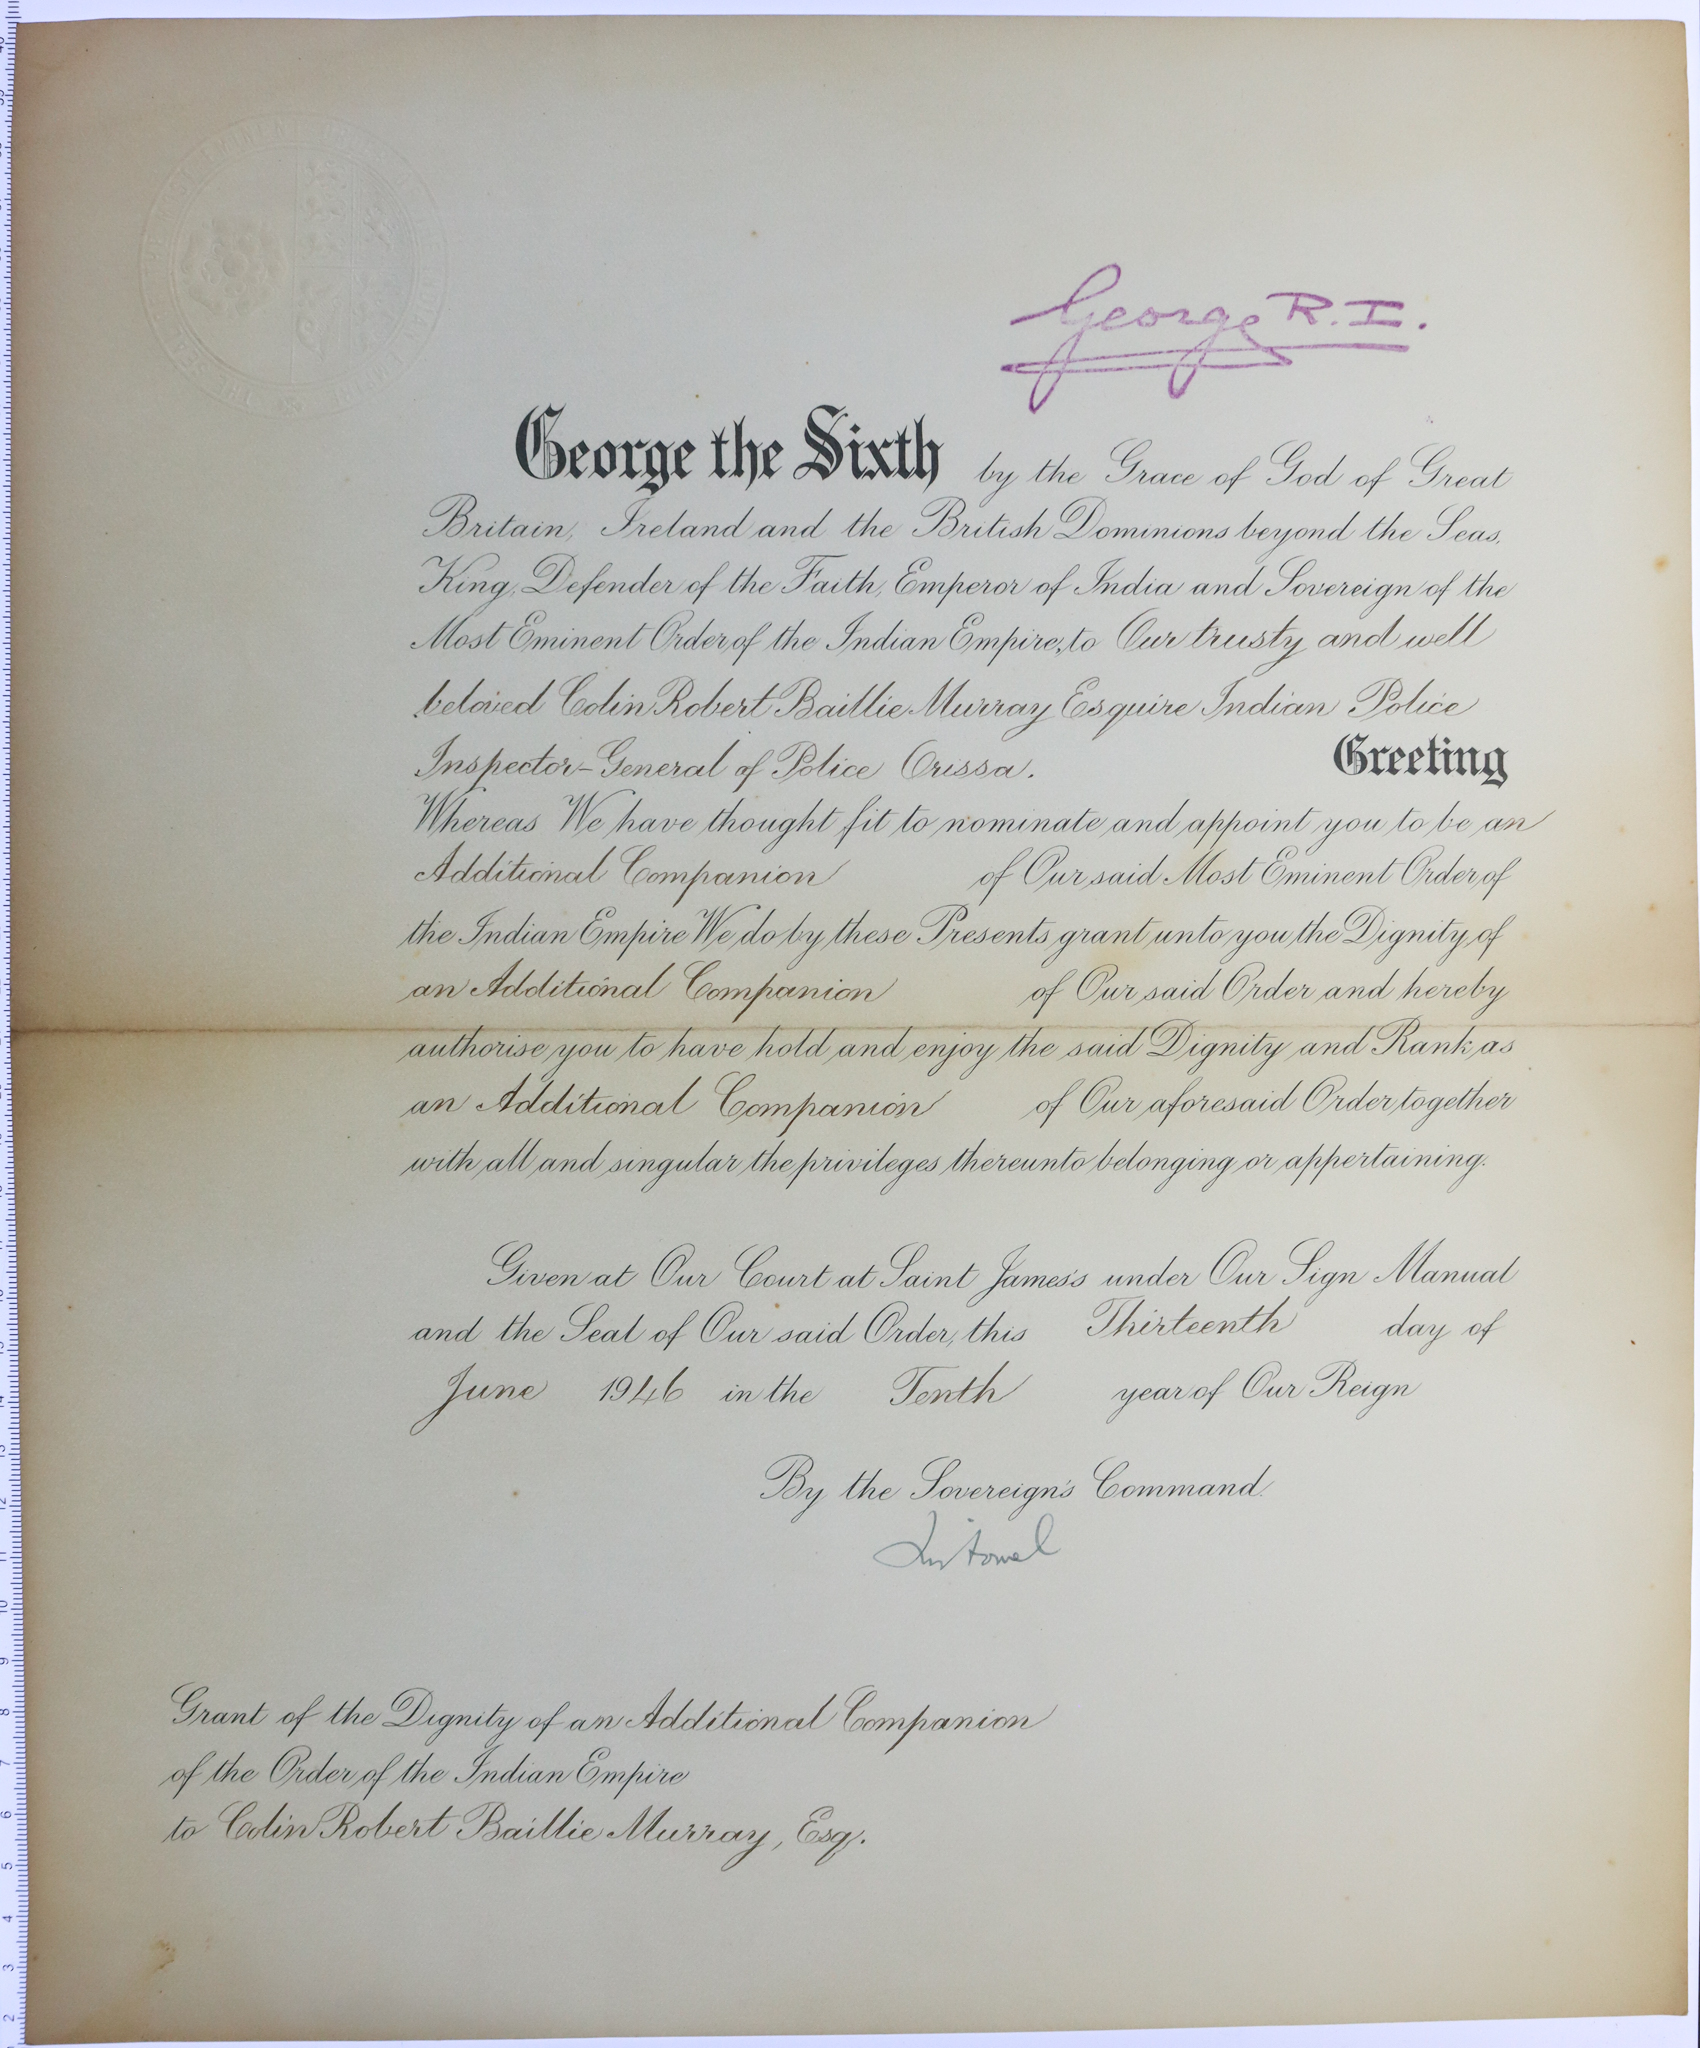 George R.I.
George the Sixth by the Grace of God of Great
Britain, Ireland and the British Dominions beyond the Seas,
King, Defender of the Faith, Emperor of India and Sovereign of the
Most Eminent Order of the Indian Empire, to Our trusty and well
beloved Colin Robert Baillie Murray Esquire Indian Police
Inspector-General of Police Orissa. Greeting
Whereas We have thought fit to nominate and appoint you to be an
Additional Companion of Our said Most Eminent Order of
the Indian Empire We do by these Presents grant unto you the Dignity of
an Additional Companion of Our said Order and hereby
authorise you to have hold and enjoy the said Dignity and Rank as
an Additional Companion of Our aforesaid Order together
with all and singular the privileges thereunto belonging or appertaining.
Given at Our Court at Saint James's under Our Sign Manual
and the Seal of Our said Order, this Thirteenth day of
June 1946 in the Tenth year of Our Reign
By the Sovereign's Command.
Grant of the Dignity of an Additional Companion
of the Order of the Indian Empire
to Colin Robert Baillie Murray, Esq.